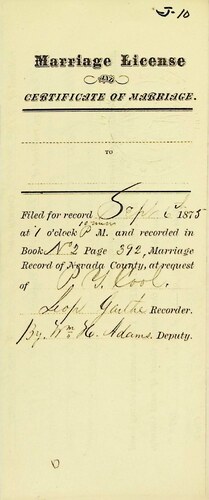 J-10
Marriage License
AND
CERTIFICATE OF MARRIAGE.
TO
Filed for record Sept 6th 1875
at 1 o'clock 10 min P. M. and recorded in
Book No 2 Page 392, Marriage
Record of Nevada County, at request
of P. Y. Cool.
Leop Garthe Recorder.
By Wm H. Adams. Deputy.